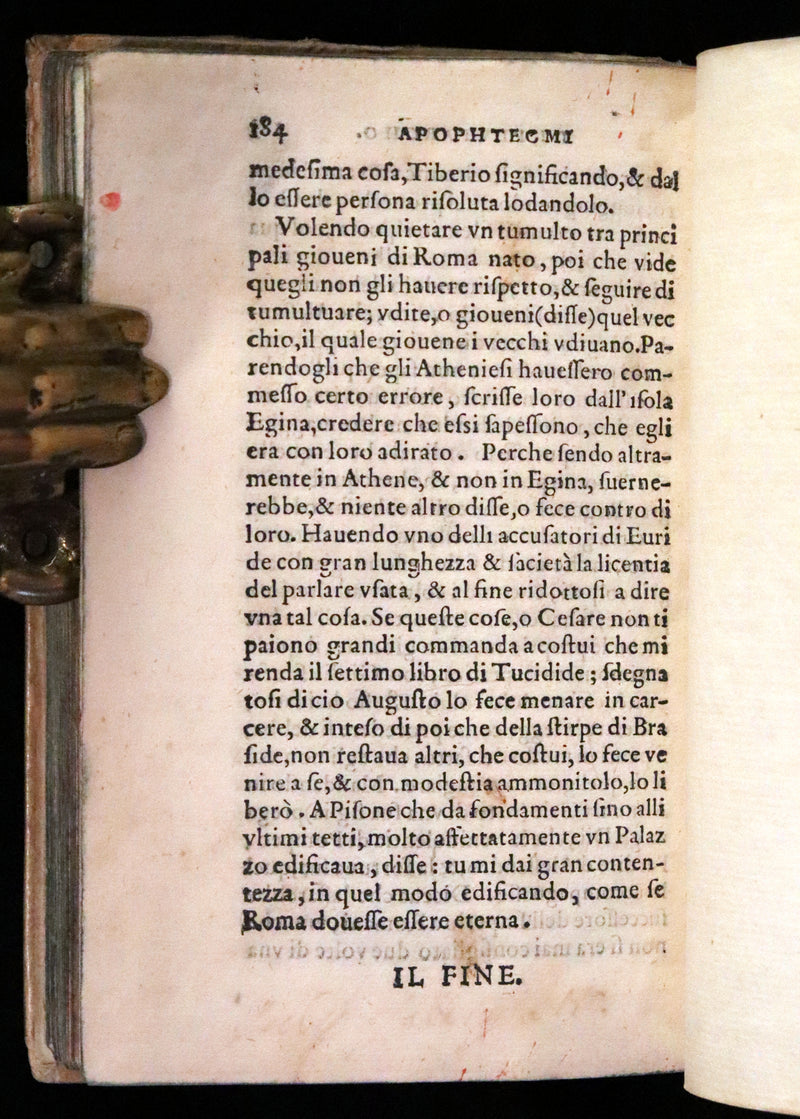 184 APOPHTEGMI
medeſima coſa,Tiberio ſignificando,& dal
lo eſſere perſona riſoluta lodandolo.
Volendo quietare vn tumulto tra princi
pali gioueni di Roma nato, poi che vide
quegli non gli hauere riſpetto,& ſeguire di
tumultuare; vdite,o gioueni(diſſe)quel vec
chio,il quale giouene i vecchi vdiuano.Pa-
rendogli che gli Athenieſi haueſſero com-
meſſo certo errore, ſcriſſe loro dall'iſola
Egina,credere che eſsi ſapeſſono, che egli
era con loro adirato. Perche ſendo altra-
mente in Athene, & non in Egina, ſuerne-
rebbe,& niente altro diſſe,o fece contro di
loro. Hauendo vno delli accuſatori di Euri
de con gran lunghezza & ſacietà la licentia
del parlare vſata, & al fine ridottoſi a dire
vna tal coſa. Se queſte coſe,o Ceſare non ti
paiono grandi commanda a coſtui che mi
renda il ſettimo libro di Tucidide; ſdegna
toſi di cio Auguſto lo fece menare in car-
cere, & inteſo di poi che della ſtirpe di Bra
ſide,non reſtaua altri, che coſtui, lo fece ve
nire a ſe,& con modeſtia ammonitolo,lo li
berò. A Piſone che da fondamenti ſino alli
vltimi tetti,molto affettatamente vn Palaz
zo edificaua, diſſe: tu mi dai gran conten-
tezza, in quel modo edificando, come ſe
Roma doueſſe eſſere eterna.
IL FINE.